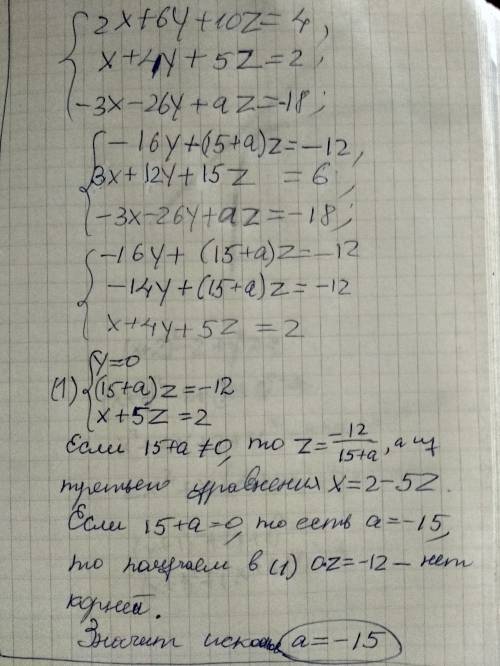 2x+6y+10z=4,
x+4y+5z=2;
-3x-26y+az=-18;
-16y+(15+a)z=-12,
3x+12y+15z=6,
-3x-26y+az=-18;
-16y+(15+a)z=-12
-14y+(15+a)z=-12
x+4y+5z=2
y=0
(1) (15+a)z=-12
x+5z=2
Если 15+a≠0, то z=-12/15+a, а из
третьего уравнения x=2-5z.
Если 15+a=0, то есть a=-15,
то получаем в (1) 0z=-12 - нет
корней.
Значит a=-15